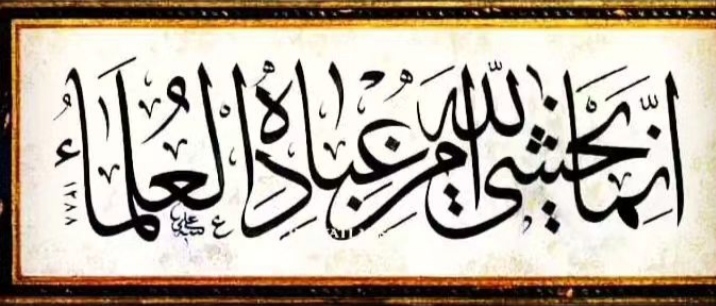 إِنَّمَا يَخْشَى اللَّهَ مِنْ عِبَادِهِ الْعُلَمَاءُ
١٢٨٨